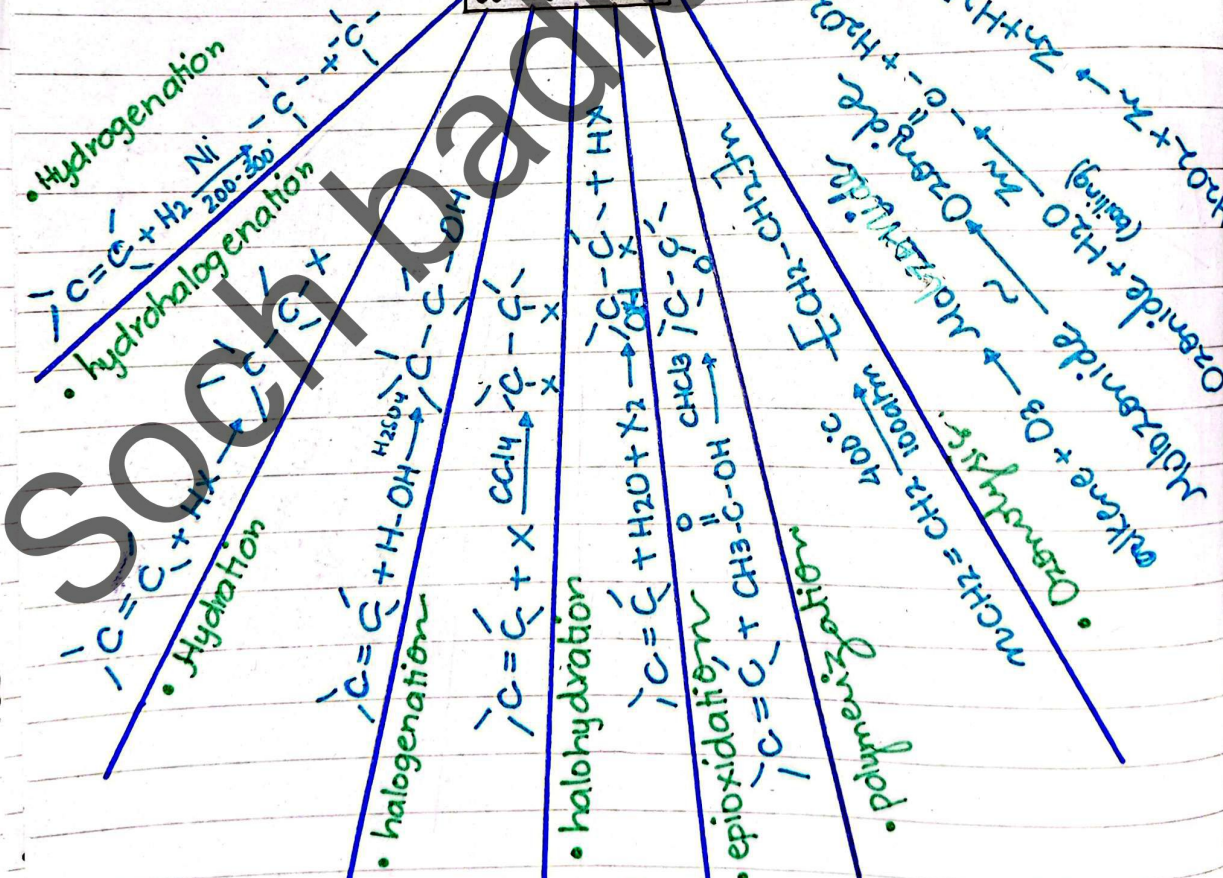 • Hydrogenation
C=C + H2 Ni 200-300° -C-+-C-
• hydrohalogenation
C=C + HX → C-C-X
• Hydration
C=C + H-OH H2SO4 → C-C-OH
• halogenation
C=C + X CCl4 → C-C
X X
• halohydration
C=C + H2O + X2 → C-C- + HX
OH X
• epioxidation
C=C + CH3-C-OH CHCl3 → C-C
O
O
• polymerization
nCH2=CH2 400°C 100atm → [CH2-CH2]n
• Ozonolysis:
alkene + O3 → Molozonide
Molozonide ~ → Ozonide
Ozonide + H2O Zn → -C- + H2O2
(boiling)
O
H2O2 + Zn → Zn+H
Soch badlo